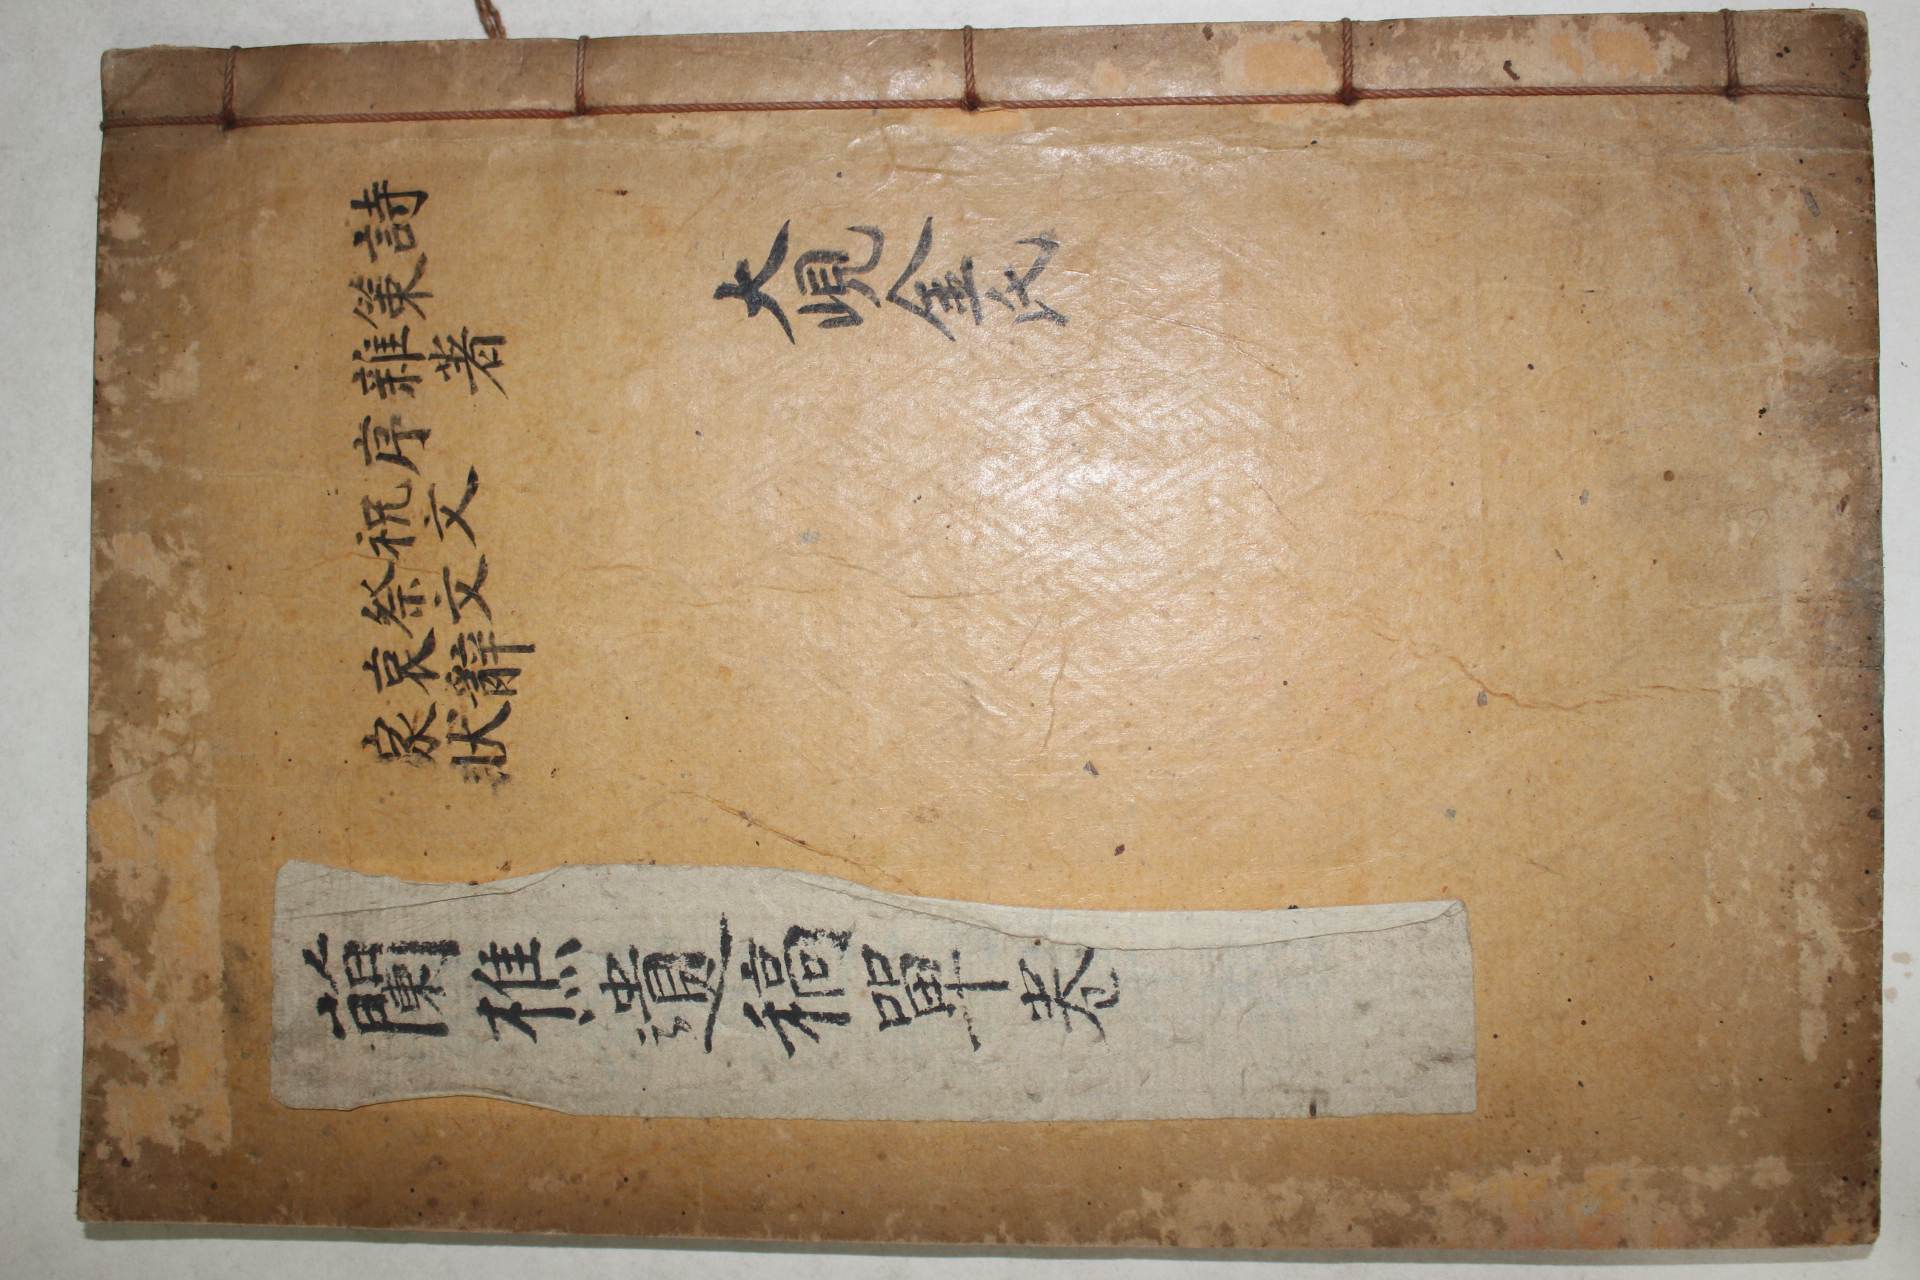 詩
策
雜著
序
祝文
祭文
哀辭
家狀
大峴金氏
蘭樵遺稿單卷